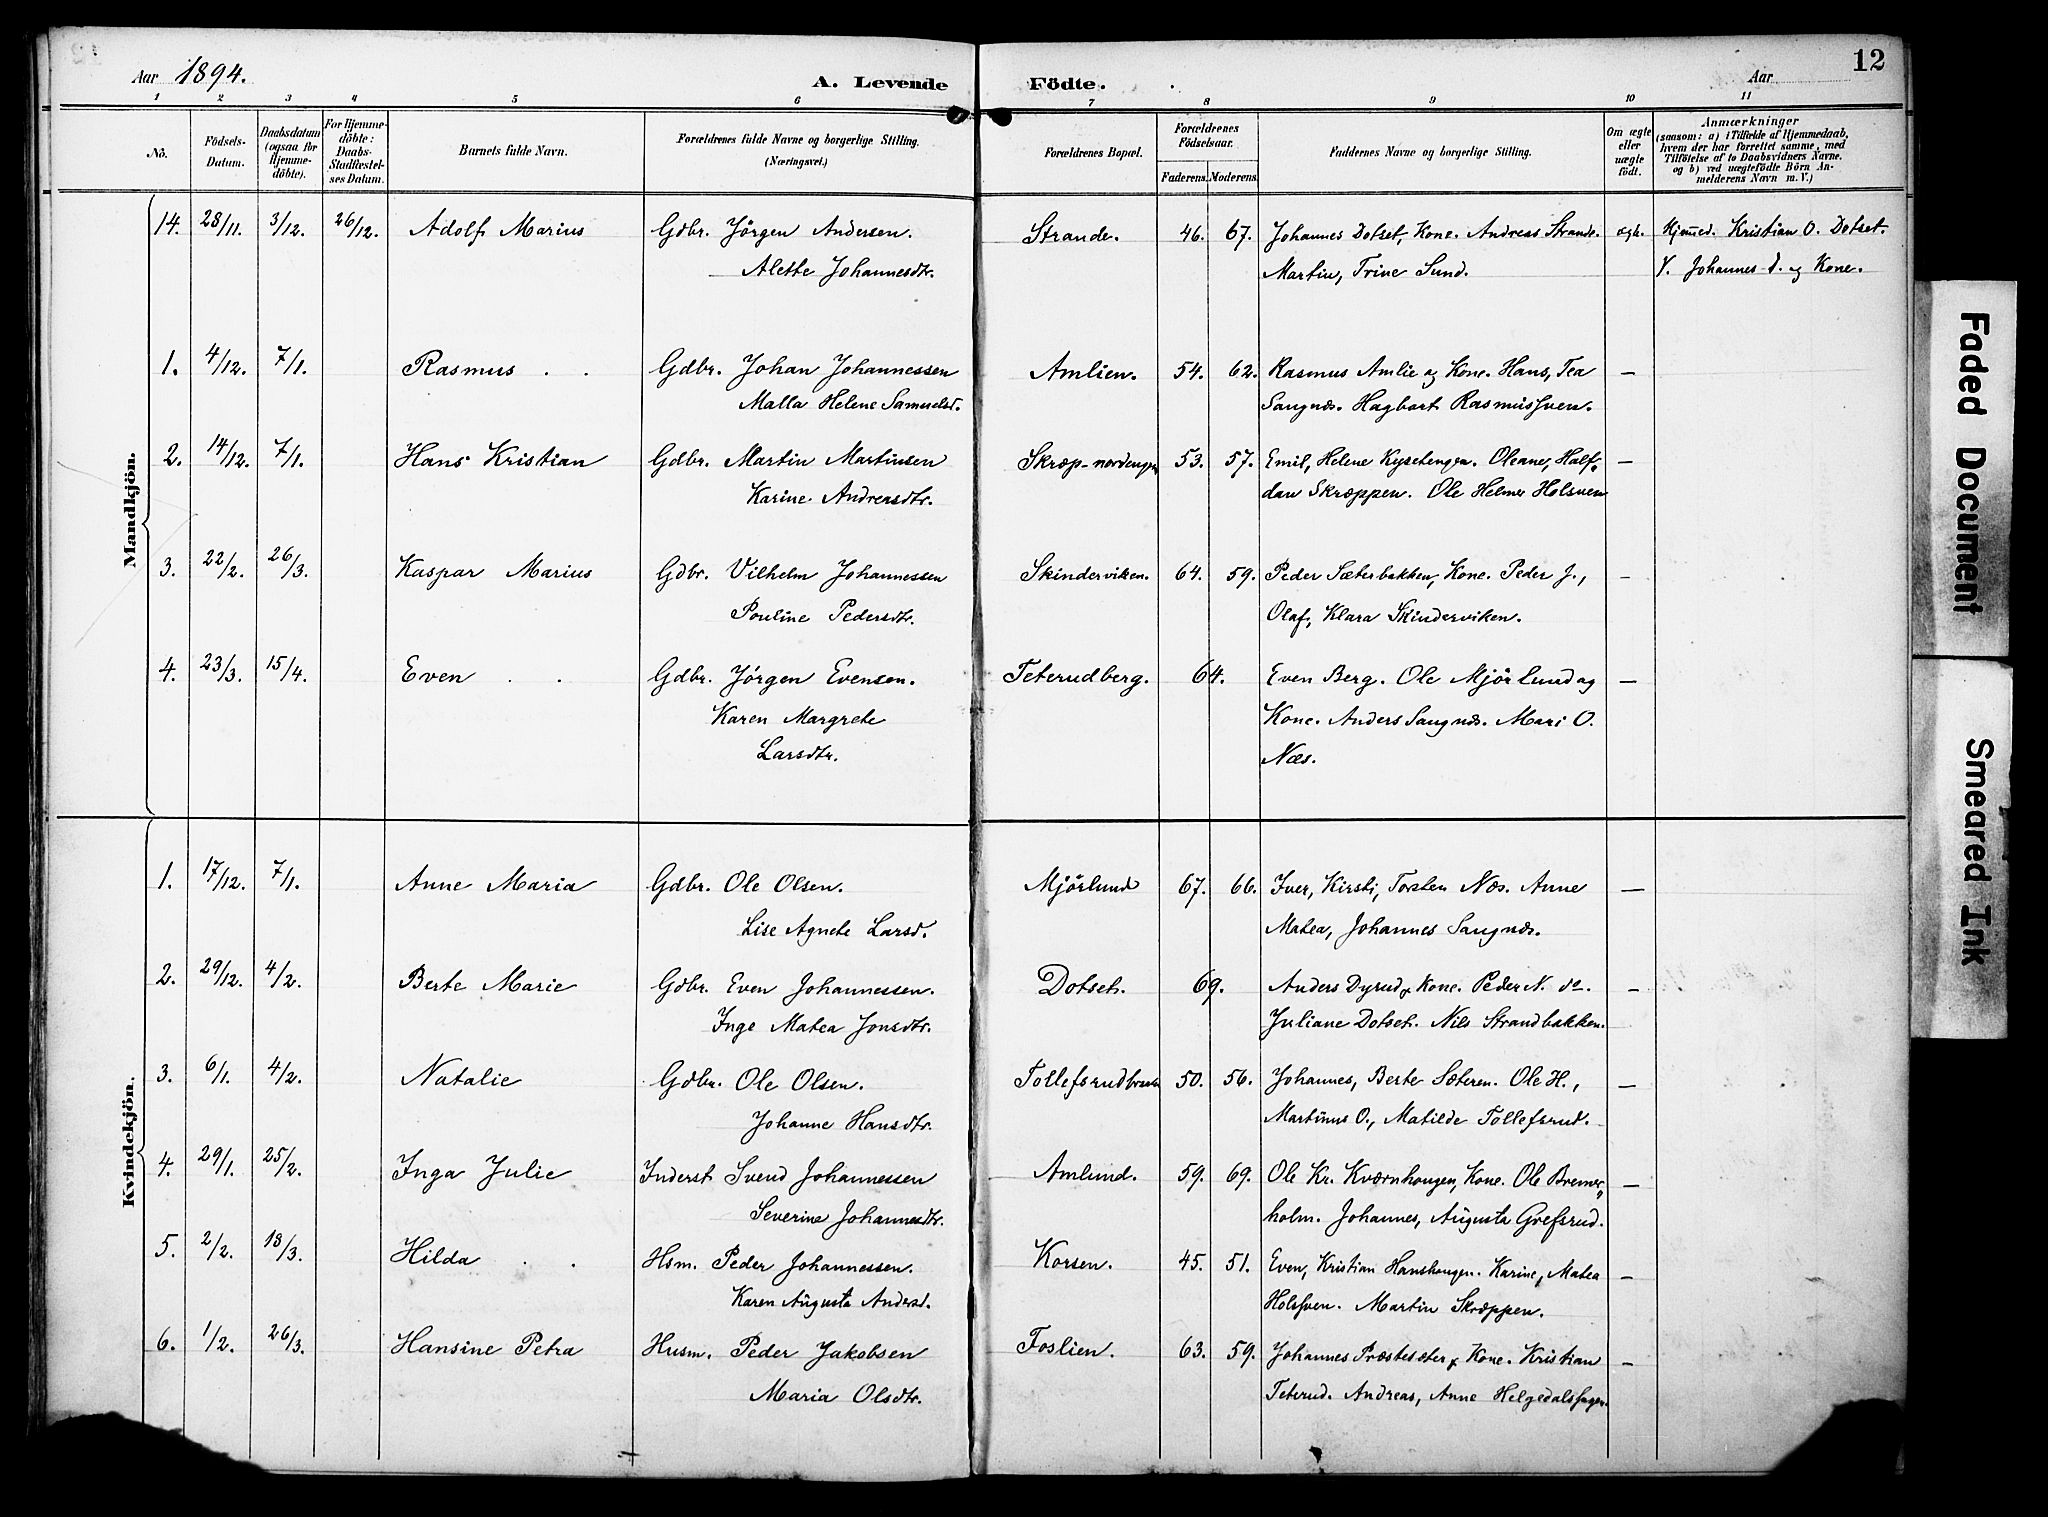 12
Aar 1894.
A. Levende Födte.
Aar
1 2 3 4 5 6 7 8 9 10 11
No.
Födsels-Datum.
Daabsdatum (ogsaa for Hjemme-döbte).
For Hjemme-döbte: Daabs-Stadfæstel-ses Datum.
Barnets fulde Navn.
Forældrenes fulde Navne og borgerlige Stilling.
(Næringsvei.)
Forældrenes Bopæl.
Forældrenes Födselsaar.
Faderens. Moderens.
Faddernes Navne og borgerlige Stilling.
Om ægte eller uægte födt.
Anmærkninger
(saasom: a) i Tilfælde af Hjemmedaab,
hvem der har forrettet samme, med
Tilföielse af to Daabsvidners Navne.
og b) ved uægtefödte Börn An-
melderens Navn m. V.)
Mandkjön.
14. 28/11. 3/12. 26/12. Adolf Marius Gdbr. Jörgen Andersen. Strande. 46. 67. Johannes Dotset, Kone. Andreas Strande. ægte. Hjmed. Kristian O. Dotset.
Alette Johannesdtr. Martin, Trine Sund. V. Johannes d. og Kone.
1. 4/12. 7/1. Rasmus Gdbr. Johan Johannessen Amlien. 54. 62. Rasmus Amlie og Kone. Hans, Tea —
Malla Helene Samuelsd. Sangnæs. Hagbart Rasmussven.
2. 14/12. 7/1. Hans Kristian Gdbr. Martin Martinsen Skræp-nordengen 53. 57. Emil, Helene Kysetengen. Oleane, Half- —
Karine Andreasdtr. dan Skræppen. Ole Helmer Holsven
3. 22/2. 26/3. Kaspar Marius Gdbr. Vilhelm Johannessen Skinderviken. 64. 59. Peder Sæterbakken, Kone. Peder J., —
Pouline Pedersdtr. Olaf, Klara Skinderviken.
4. 23/3. 15/4. Even Gdbr. Jörgen Evensen. Teterudberg. 64. Even Berg. Ole Mjörlund og —
Karen Margrete Kone. Anders Sangnæs. Mari O.
Larsdtr. Næs.
Kvindekjön.
1. 17/12. 7/1. Anne Maria Gdbr. Ole Olsen. Mjörlund 67. 66. Iver, Kirsti, Torsten Næs. Anne —
Lise Agnete Larsd. Matea, Johannes Sangnæs.
2. 29/12. 4/2. Berte Marie Gdbr. Even Johannessen. Dotset. 69. Anders Dyrud & Kone. Peder N. do. —
Inge Matea Jonsdtr. Juliane Dotset. Nils Strandbakken.
3. 6/1. 4/2. Natalie Gdbr. Ole Olsen. 50. 56. Johannes, Berte Sæteren. Ole H., —
Johanne Hansdtr. Martinus O., Matilde Tollefsrud.
4. 29/1. 25/2. Inga Julie Inderst Svend Johannessen Amlund. 59. 69. Ole Kr. Kværnhougen, Kone. Ole Bremer- —
Severine Johannesdtr. holm. Johannes, Augusta Grefsrud.
5. 2/2. 18/3. Hilda Hsm. Peder Johannessen. Korsen. 45. 51. Even, Kristian Hanshougen. Karine, Matea —
Karen Augusta Andersd. Holssven. Martin Skræppen.
6. 1/2. 26/3. Hansine Petra Husm. Peder Jakobsen Foslien. 63. 59. Johannes Præstesæter & Kone. Kristian —
Maria Olsdtr. Teterud. Andreas, Anne Helgedalshagen.
Faded Document
Smeared Ink